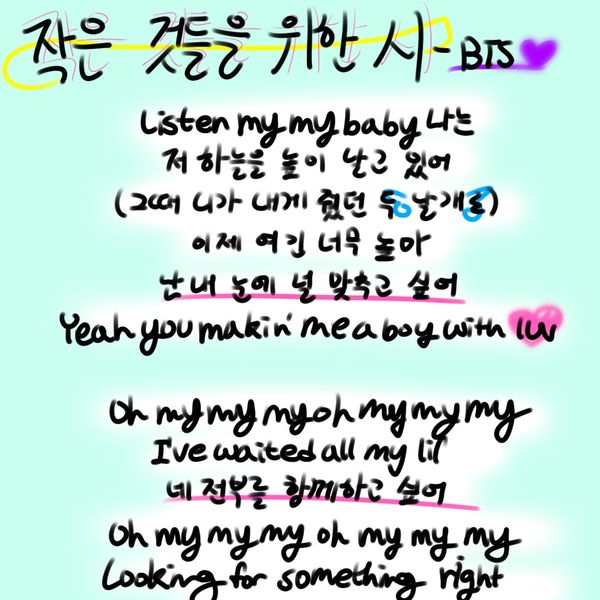 작은 것들을 위한 시 - BTS
Listen my my baby 나는
저 하늘을 높이 날고 있어
(그때 니가 내게 줬던 두 날개로)
이제 여긴 너무 높아
난 내 눈에 널 맞추고 싶어
Yeah you makin' me a boy with luv
Oh my my my oh my my my
I've waited all my lil'
네 전부를 함께하고 싶어
Oh my my my oh my my my
Looking for something right